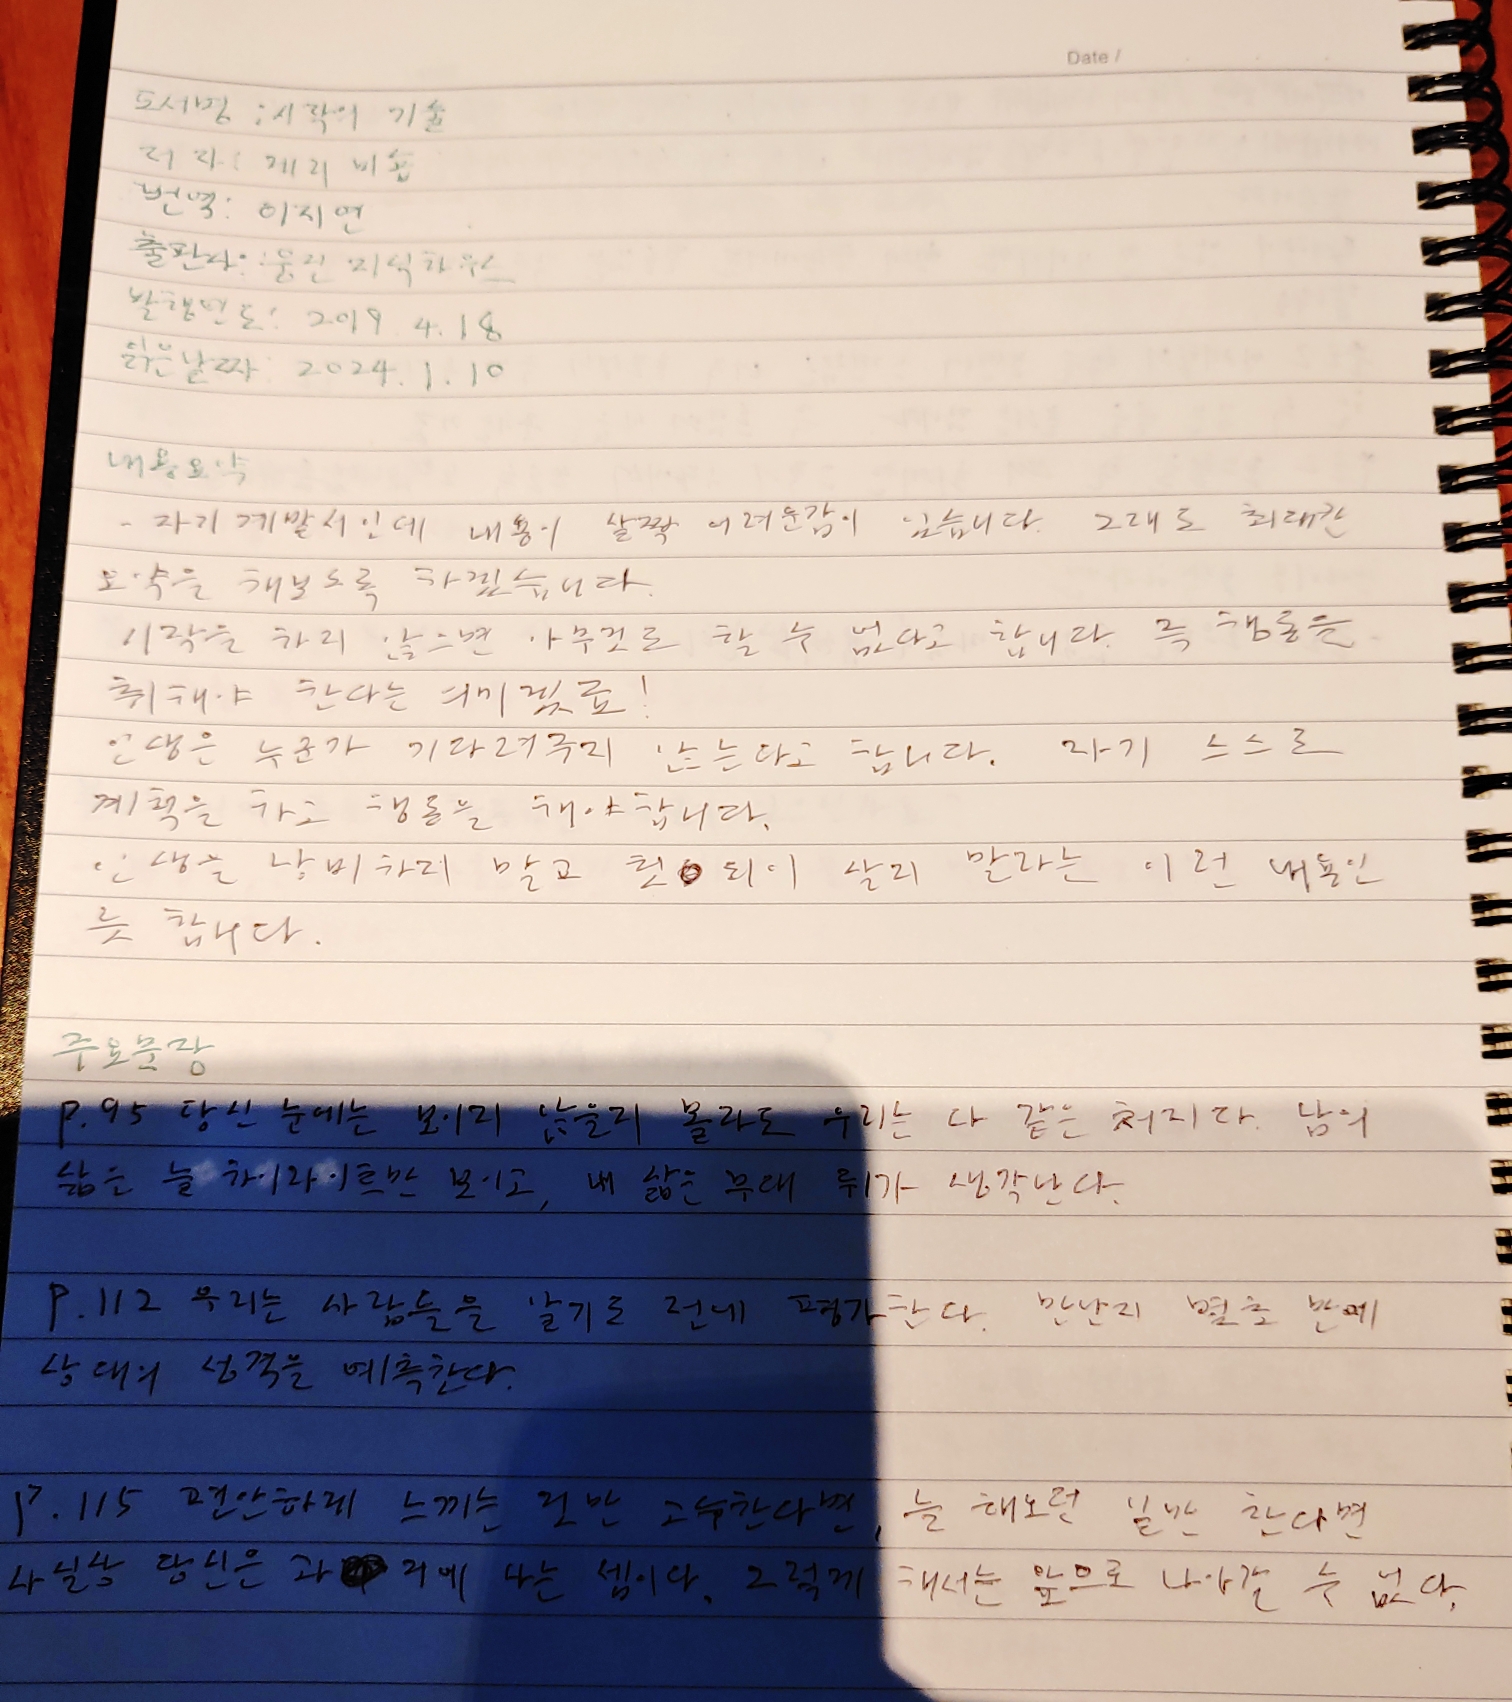 Date /
도서명 : 시작의 기술
저자 : 게리 비숍
번역 : 이지연
출판사 : 웅진 지식하우스
발행연도 : 2019. 4. 18
읽은날짜 : 2024. 1. 10
내용요약
- 자기계발서인데 내용이 살짝 어려운감이 있습니다. 그래도 최대한
요약을 해보도록 하겠습니다.
시작을 하지 않으면 아무것도 할 수 없다고 합니다. 즉 행동을
취해야 한다는 의미겠죠!
인생은 누군가 기다려주지 않는다고 합니다. 자기 스스로
계획을 하고 행동을 해야합니다.
인생을 낭비하지 말고 헛되이 살지 말라는 이런 내용인
듯 합니다.
주요문장
P.95 당신 눈에는 보이지 않을지 몰라도 우리는 다 같은 처지다. 남의
삶은 늘 하이라이트만 보이고, 내 삶은 무대 뒤가 생각난다.
P.112 우리는 사람들을 알기도 전에 평가한다. 만난지 몇초 만에
상대의 성격을 예측한다.
P.115 편안하게 느끼는 것만 고수한다면, 늘 해오던 일만 한다면
사실상 당신은 과거에 사는 셈이다. 그렇게 해서는 앞으로 나아갈 수 없다.